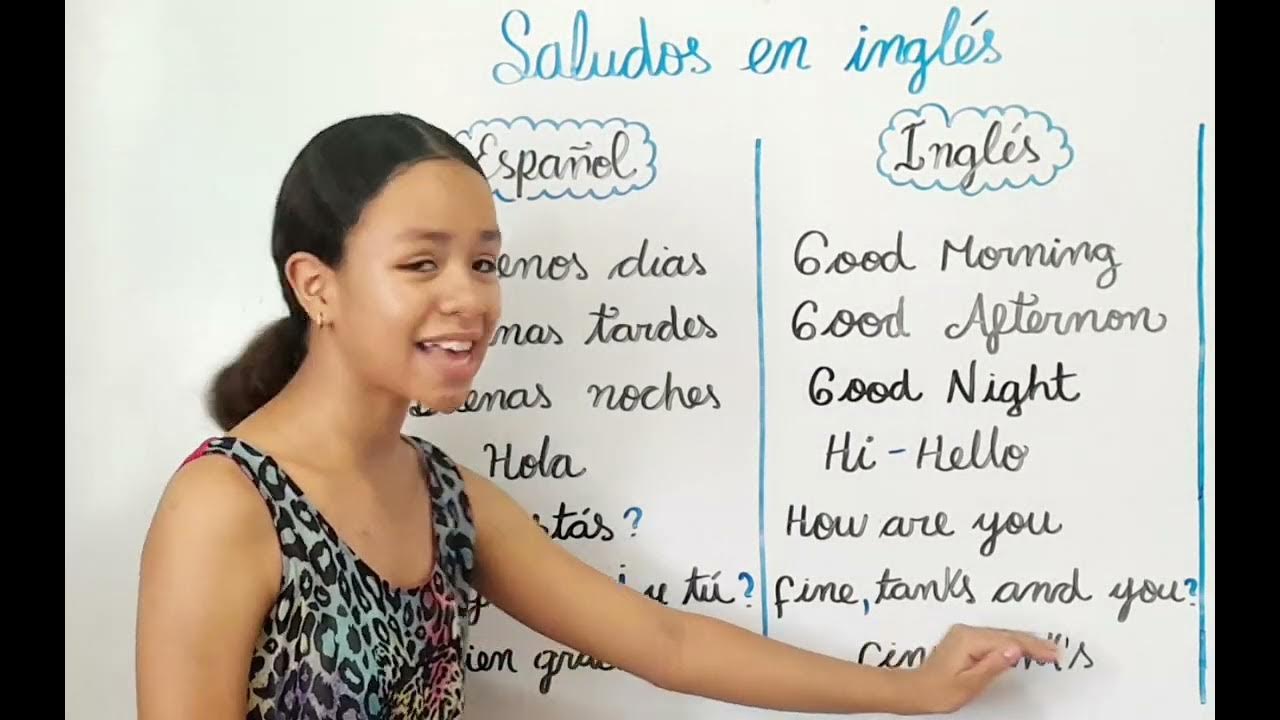 Saludos en inglés
Español Inglés
dias Good Morning
tardes Good Afternon
noches Good Night
Hola Hi - Hello
How are you
y tú? fine, tanks and you?